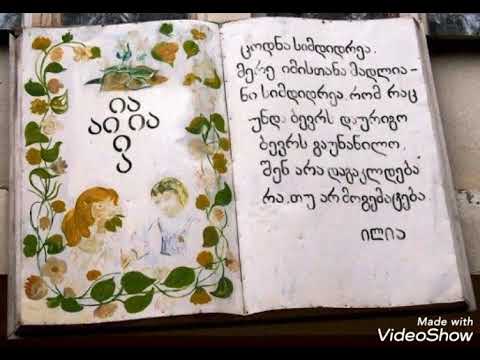 ია
აი ია
ი
ა
ცოდნა სიმდიდრეა.
მერე იმისთანა მადლია-
ნი სიმდიდრეა, რომ რაც
უნდა ბევრს დაურიგო
ბევრს გაუნაწილო,
შენ არა დაგაკლდება
რა, თუ არ მოგემატება
ილია
Made with
VideoShow